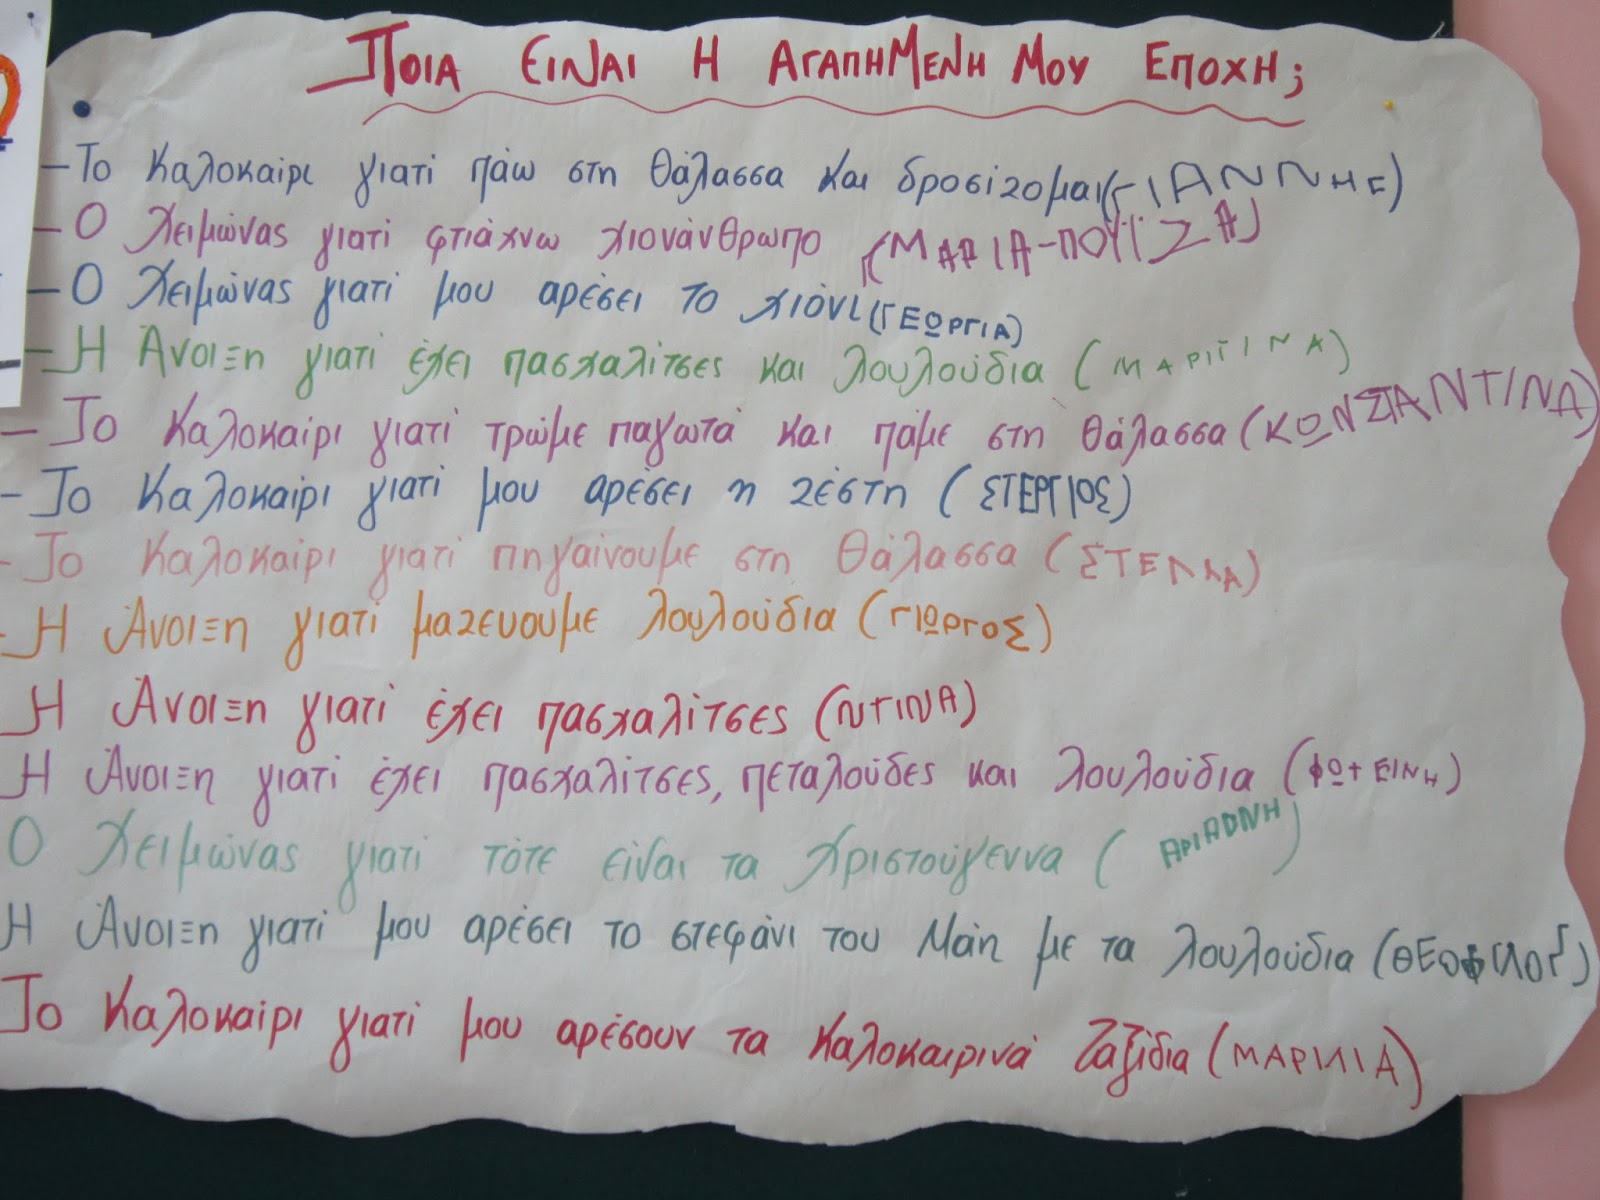 ΠΟΙΑ ΕΙΝΑΙ Η ΑΓΑΠΗΜΕΝΗ ΜΟΥ ΕΠΟΧΗ;
- Το Καλοκαίρι γιατί πάω στη θάλασσα και δροσίζομαι (ΓΙΑΝΝΗΣ)
- Ο Χειμώνας γιατί φτιάχνω χιονάνθρωπο (ΜΑΡΙΑ-ΠΟΥΪΖΑ)
- Ο Χειμώνας γιατί μου αρέσει το χιόνι (ΓΕΩΡΓΙΑ)
- Η Άνοιξη γιατί έχει πασχαλίτσες και λουλούδια (ΜΑΡΙΤΙΝΑ)
- Το Καλοκαίρι γιατί τρώμε παγωτά και πάμε στη θάλασσα (ΚΩΝΣΤΑΝΤΙΝΑ)
- Το Καλοκαίρι γιατί μου αρέσει η ζέστη (ΣΤΕΡΓΙΟΣ)
- Το Καλοκαίρι γιατί πηγαίνουμε στη Θάλασσα (ΣΤΕΛΛΑ)
- Η Άνοιξη γιατί μαζευουμε λουλούδια (ΓΙΩΡΓΟΣ)
Η Άνοιξη γιατί έχει πασχαλίτσες (ΝΤΙΝΑ)
Η Άνοιξη γιατί έχει πασχαλίτσες, πεταλούδες και λουλούδια (ΦΩΤΕΙΝΗ)
Ο Χειμώνας γιατί τότε είναι τα Χριστούγεννα (ΑΡΙΑΔΝΗ)
Η Άνοιξη γιατί μου αρέσει το στεφάνι του Μάη με τα λουλούδια (ΘΕΟΦΙΛΟΣ)
Το Καλοκαίρι γιατί μου αρέσουν τα Καλοκαιρινά Ταξίδια (ΜΑΡΙΛΙΑ)